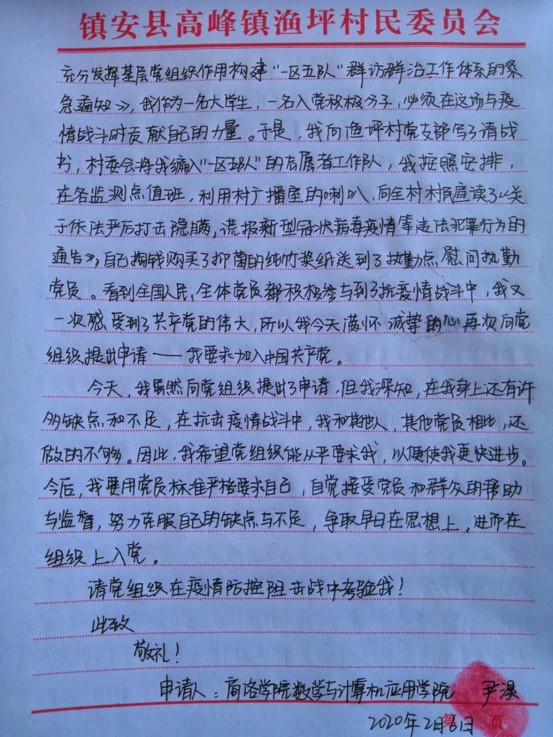 镇安县高峰镇渔坪村民委员会
充分发挥基层党组织作用构建“一区五队”群访群治工作体系的紧
急通知》，我作为一名大学生，一名入党积极分子，必须在这场与疫
情战斗时贡献自己的力量。于是，我向渔坪村党支部写了请战
书，村委会将我编入“一区五队”的志愿者工作队，我按照安排，
在各监测点值班，利用村广播室的喇叭，向全村村民宣读了《关
于依法严厉打击隐瞒，谎报新型冠状病毒疫情等违法犯罪行为的
通告》，自己掏钱购买了抑菌的纯竹浆纸送到了执勤点，慰问执勤
党员。看到全国人民，全体党员都积极参与到了抗疫情战斗中，我又
一次感受到了共产党的伟大，所以我今天满怀诚挚的心再次向党
组织提出申请——我要求加入中国共产党。
今天，我虽然向党组织提出了申请，但我深知，在我身上还有许
多缺点和不足，在抗击疫情战斗中，我和其他人，其他党员相比，还
做的不够。因此，我希望党组织能从严要求我，以便使我更快进步。
今后，我要用党员标准严格要求自己，自觉接受党员和群众的帮助
与监督，努力克服自己的缺点与不足，争取早日在思想上，进而在
组织上入党。
请党组织在疫情防控阻击战中考验我！
此致
敬礼！
申请人：商洛学院数学与计算机应用学院 尹
2020年2月6日
第 页